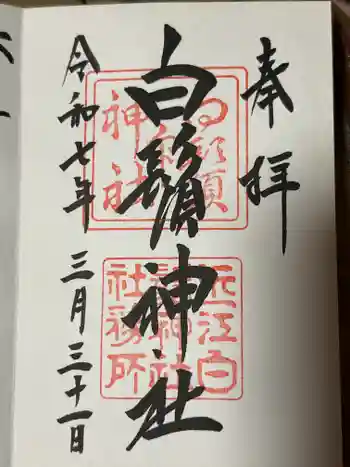 奉拝
白鬚神社
令和七年 三月三十一日
白鬚神社
近江白鬚神社社務所